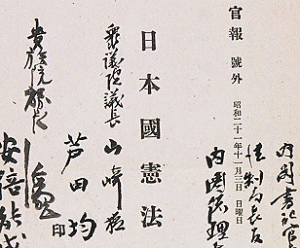 官報 號外 昭和二十一年十一月三日 日曜日
内閣書記官
法制局長
内閣総理
日本國憲法
衆議院議長 山崎猛
芦田均 印
貴族院議長
安倍能成